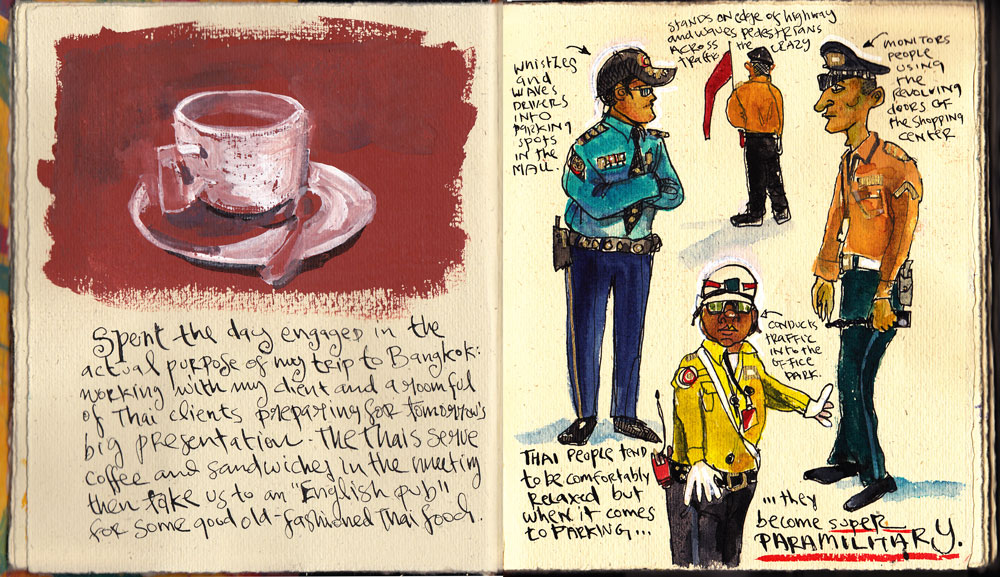 Spent the day engaged in the
actual purpose of my trip to Bangkok:
working with my client and a roomful
of Thai clients preparing for tomorrow's
big presentation - The Thais serve
coffee and sandwiches in the meeting
then take us to an "English pub"
for some good old-fashioned Thai food.
Whistles
and
waves
drivers
into
parking
spots
in the
mall.
Stands on edge of highway
and waves pedestrians
across the crazy
traffic
Monitors
people
using
the
revolving
doors of
the shopping
center
conducts
traffic
into the
office
park.
Thai people tend
to be comfortably
relaxed but
when it comes
to parking...
...they
become super
PARAMILITARY.